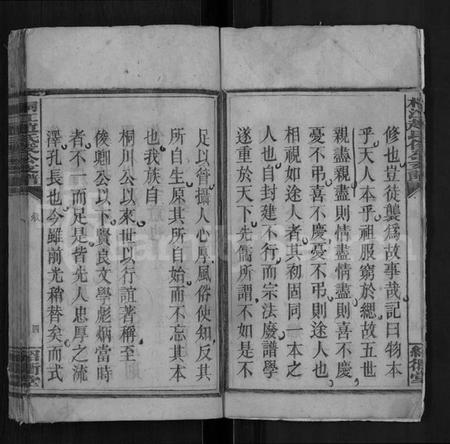 修也豈徒襲為故事哉記曰物本
乎天人本乎祖服窮於緦故五世
親盡親盡則情盡情盡則喜不慶
憂不弔喜不慶憂不弔則途人也
相視如途人者其初固同一本之
人也自封建不行而宗法廢譜學
遂重於天下先儒所謂不如是不
足以管攝人心厚風俗使知反其
所自生原其所自始而不忘其本
也我族自
桐川公以來世以行誼著稱至
俊卿公以下賢良文學彪炳當時
者不一而足是皆先人忠厚之流
澤孔長也今雖前光稍替矣而式
卷
四